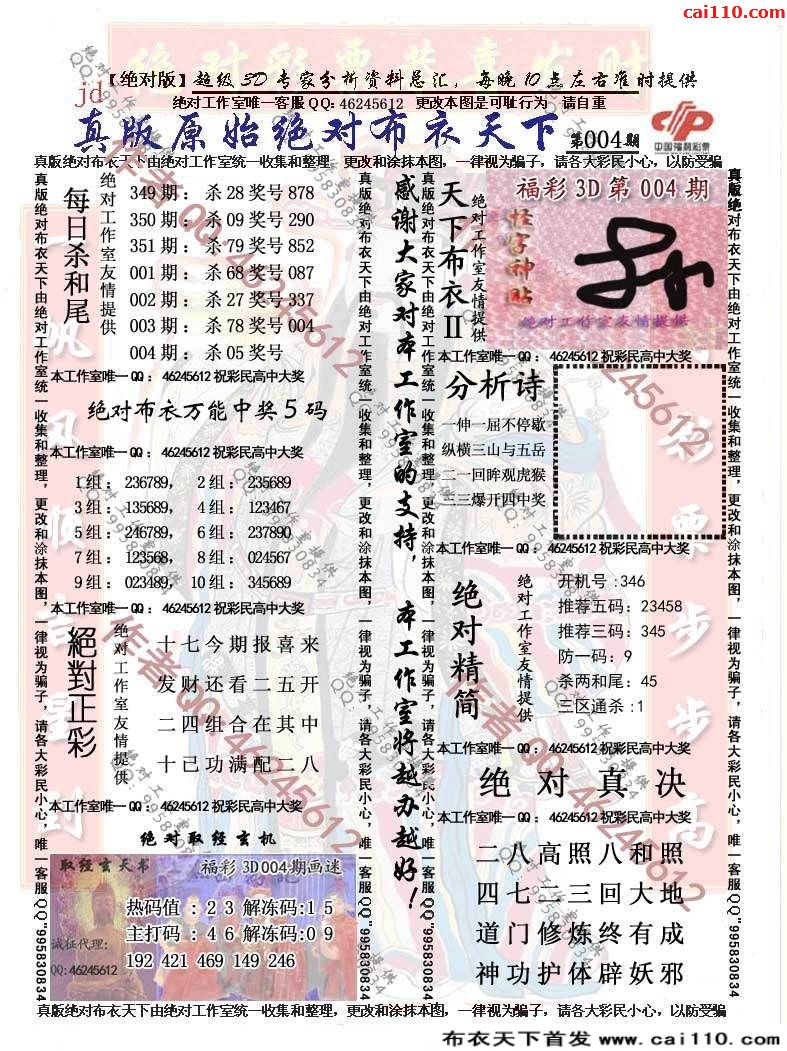 cai110.com
绝对彩票恭喜发财
【绝对版】超级3D专家分析资料总汇，每晚10点左右准时提供
jd
绝对工作室唯一客服QQ:46245612 更改本图是可耻行为 请自重
真版原始绝对布衣天下
第004期
中国福利彩票
真版绝对布衣天下由绝对工作室统一收集和整理，更改和涂抹本图，一律视为骗子，请各大彩民小心，以防受骗
真版绝对布衣天下由绝对工作室统一收集和整理，更改和涂抹本图，一律视为骗子，请各大彩民小心，唯一客服QQ"995830834
每日杀和尾
绝对工作室友情提供
349期：杀28奖号878
350期：杀09奖号290
351期：杀79奖号852
001期：杀68奖号087
002期：杀27奖号337
003期：杀78奖号004
004期：杀05奖号
本工作室唯一QQ：46245612祝彩民高中大奖
绝对布衣万能中奖5码
本工作室唯一QQ：46245612祝彩民高中大奖
1组：236789， 2组：235689
3组：135689， 4组：123467
5组：246789， 6组：237890
7组：123568， 8组：024567
9组：023489， 10组：345689
本工作室唯一QQ：46245612祝彩民高中大奖
絕對正彩
绝对工作室友情提供
十七今期报喜来
发财还看二五开
二四组合在其中
十已功满配二八
本工作室唯一QQ：46245612祝彩民高中大奖
绝对取经玄机
取经玄天书
福彩3D004期画迷
热码值：23解冻码:15
主打码：46解冻码:09
192 421 469 149 246
诚征代理:
QQ:46245612
真版绝对布衣天下由绝对工作室统一收集和整理，更改和涂抹本图，一律视为骗子，请各大彩民小心，唯一客服QQ"995830834
感谢大家对本工作室的支持，本工作室将越办越好！
真版绝对布衣天下由绝对工作室统一收集和整理，更改和涂抹本图，一律视为骗子，请各大彩民小心，唯一客服QQ"995830834
天下布衣II
绝对工作室友情提供
福彩3D第004期
怪字神贴
绝对工作室友情提供
本工作室唯一QQ：46245612祝彩民高中大奖
分析诗
一伸一屈不停歇
纵横三山与五岳
二一回眸观虎猴
三三爆开四中奖
本工作室唯一QQ：46245612祝彩民高中大奖
绝对精简
绝对工作室友情提供
开机号:346
推荐五码:23458
推荐三码:345
防一码:9
杀两和尾:45
三区通杀:1
本工作室唯一QQ：46245612祝彩民高中大奖
绝对真决
本工作室唯一QQ：46245612祝彩民高中大奖
二八高照八和照
四七二三回大地
道门修炼终有成
神功护体辟妖邪
真版绝对布衣天下由绝对工作室统一收集和整理，更改和涂抹本图，一律视为骗子，请各大彩民小心，唯一客服QQ"995830834
真版绝对布衣天下由绝对工作室统一收集和整理，更改和涂抹本图，一律视为骗子，请各大彩民小心，以防受骗
布衣天下首发 www.cai110.com
作者QQ:46245612
绝对工作室提供
QQ:995830834